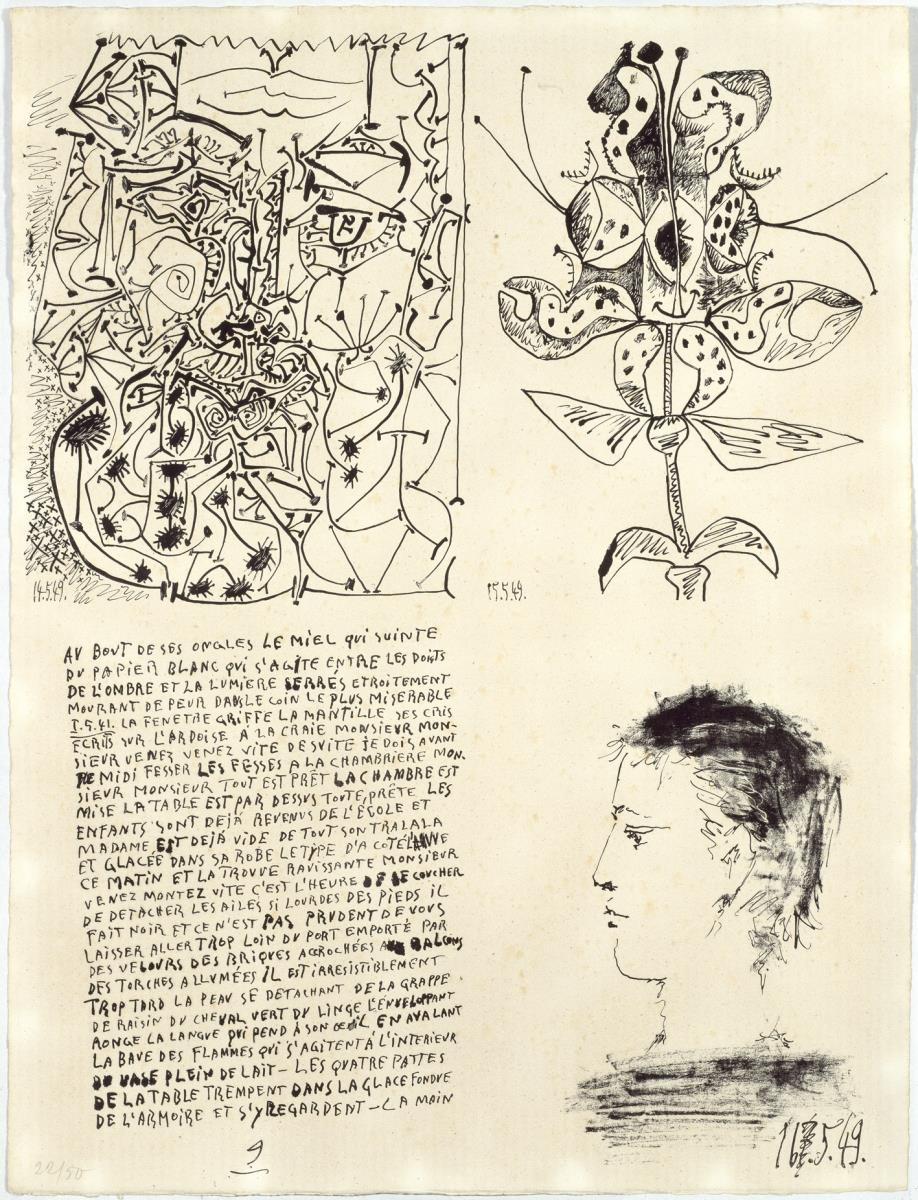 14.5.49.
15.5.49.
AU BOUT DE SES ONGLES LE MIEL QUI SUINTE
DU PAPIER BLANC QUI S'AGITE ENTRE LES DOIGTS
DE L'OMBRE ET LA LUMIERE SERRÉS ETROITEMENT
MOURANT DE PEUR DANS LE COIN LE PLUS MISERABLE
1.5.41. LA FENETRE GRIFFE LA MANTILLE SES CRIS
ECRITS SUR L'ARDOISE A LA CRAIE MONSIEUR MON-
SIEUR VENEZ VENEZ VITE DE SUITE JE DOIS AVANT
MIDI FESSER LES FESSES A LA CHAMBRIÈRE MON.
SIEUR MONSIEUR TOUT EST PRÊT LA CHAMBRE EST
MISE LA TABLE EST PAR DESSUS TOUTE PRÊTE LES
ENFANTS SONT DEJÀ REVENUS DE L'ÉCOLE ET
MADAME EST DEJÀ VIDE DE TOUT SON TRALALA
ET GLACÉE DANS SA ROBE LE TYPE D'A COTÉ
CE MATIN ET LA TROUVE RAVISSANTE MONSIEUR
VENEZ MONTEZ VITE C'EST L'HEURE DE SE COUCHER
DE DETACHER LES AILES SI LOURDES DES PIEDS IL
FAIT NOIR ET CE N'EST PAS PRUDENT DE VOUS
LAISSER ALLER TROP LOIN DU PORT EMPORTÉ PAR
DES VELOURS DES BRIQUES ACCROCHÉES BALCONS
DES TORCHES ALLUMÉES IL EST IRRESISTIBLEMENT
TROP TARD LA PEAU SE DETACHANT DE LA GRAPPE
DE RAISIN DU CHEVAL VERT DU LINGE L'ENVELOPPANT
RONGE LA LANGUE QUI PEND À SON OEIL EN AVALANT
LA BAVE DES FLAMMES QUI S'AGITENT À L'INTERIEUR
DU VASE PLEIN DE LAIT – LES QUATRE PATTES
DE LA TABLE TREMPENT DANS LA GLACE FONDUE
DE L'ARMOIRE ET S'Y REGARDENT – LA MAIN
9
16.5.49.
22/50